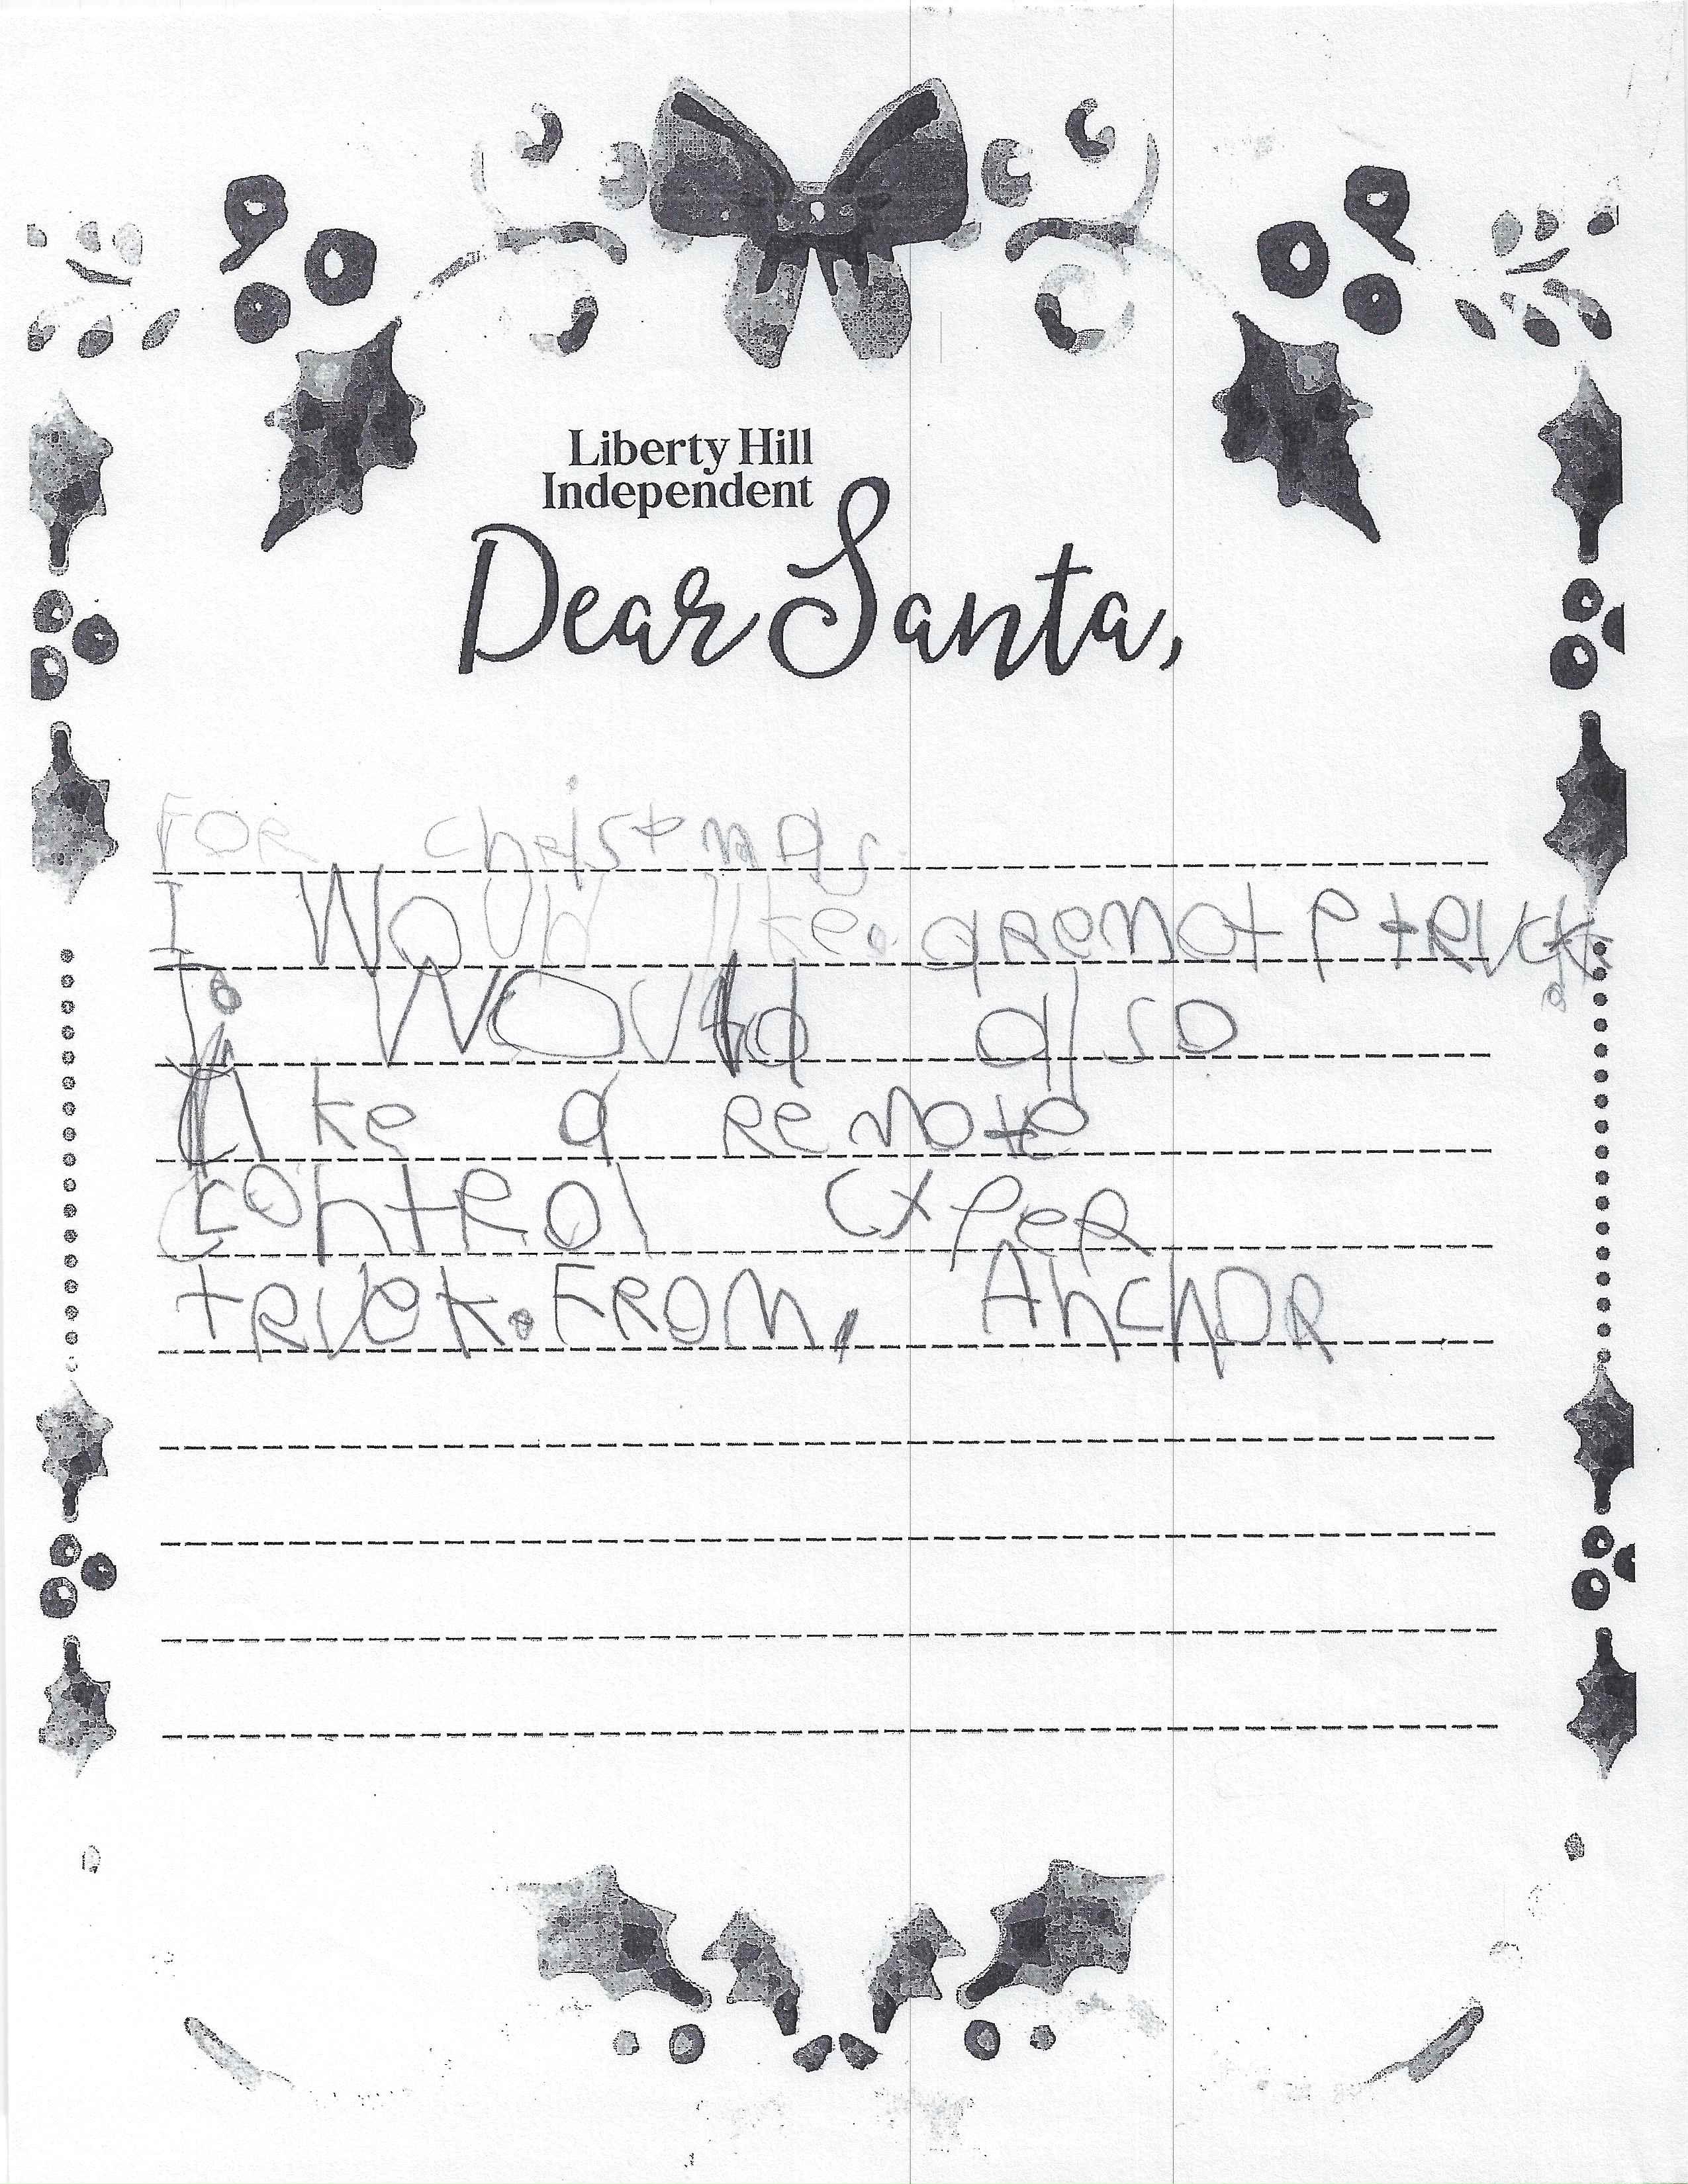 Liberty Hill
Independent
Dear Santa,
FOR christmas
I Would like. a Remote truck.
I. Would also
like a Remote
contRol cxper
truck. FROM, AnchoR